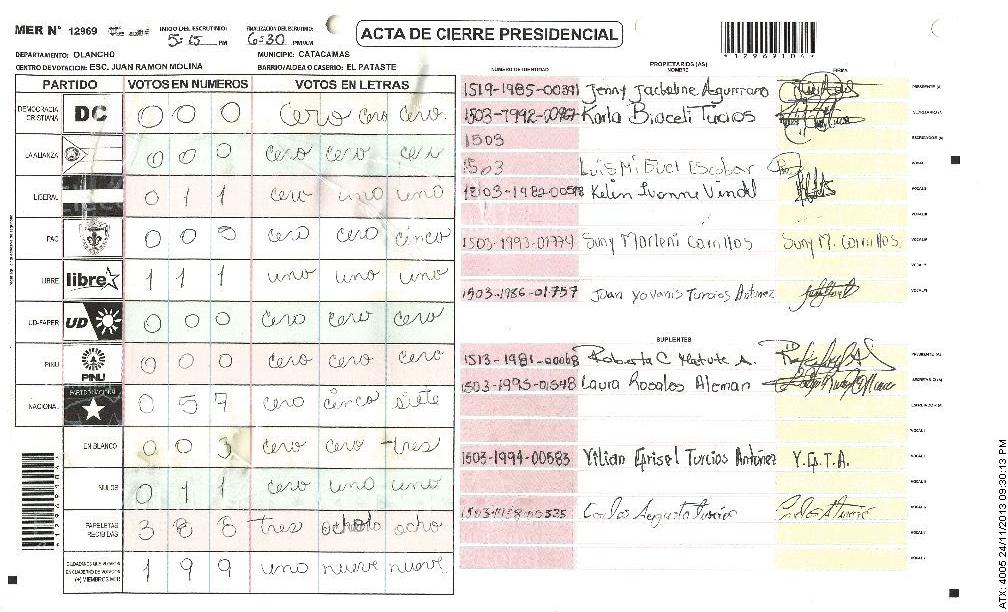 MER N° 12969
INICIO DEL ESCRUTINIO: 5:15 PM
FINALIZACION DEL ESCRUTINIO: 6:30 PM/AM
ACTA DE CIERRE PRESIDENCIAL
*12969104*
DEPARTAMENTO: OLANCHO
MUNICIPIO: CATACAMAS
CENTRO DE VOTACION: ESC. JUAN RAMON MOLINA
BARRIO/ALDEA O CASERIO: EL PATASTE
PARTIDO VOTOS EN NUMEROS VOTOS EN LETRAS
DEMOCRACIA CRISTIANA DC 0 0 0 cero cero cero.
LA ALIANZA 0 0 0 cero cero cero
LIBERAL 0 1 1 cero uno uno
PAC 0 0 5 cero cero cinco
LIBRE libre 1 1 1 uno uno uno
UD-FAPER UD 0 0 0 cero cero cero
PINU PINU 0 0 0 cero cero cero
NACIONAL PARTIDO NACIONAL 0 5 7 cero cinco siete
EN BLANCO 0 0 3 cero cero tres
NULOS 0 1 1 cero uno uno
PAPELETAS RECIBIDAS 3 8 8 tres ocho ocho
(+) MIEMBROS MER 1 9 9 uno nueve nueve
NÚMERO DE IDENTIDAD PROPIETARIOS (AS) NOMBRE FIRMA
Jenny Jackeline PRESIDENTE (A)
Karla Biaceli Turcios SECRETARIO (A)
1503 ESCRUTADOR (A)
1503 Luis Miguel Escobar VOCAL I
Kelin Ivonne VOCAL II
VOCAL III
1503-1993-01774 Suny Marleni Carrillos Suny M. Carrillos VOCAL IV
VOCAL V
1503-1986-01757 Juan Yovanis Turcios Antunez VOCAL VI
SUPLENTES
1513-1981-00068 Roberto C Matute A. PRESIDENTE (A)
1503-1995-01548 Laura Rosales Aleman SECRETARIO (A)
ESCRUTADOR (A)
VOCAL I
1503-1994-00583 Vilian Grisel Turcios Antúnez Y.G.T.A. VOCAL II
VOCAL III
Carlos Augusto Turcios VOCAL IV
VOCAL V
*12969104*
ATX: 4005 24/11/2013 09:30:13 PM